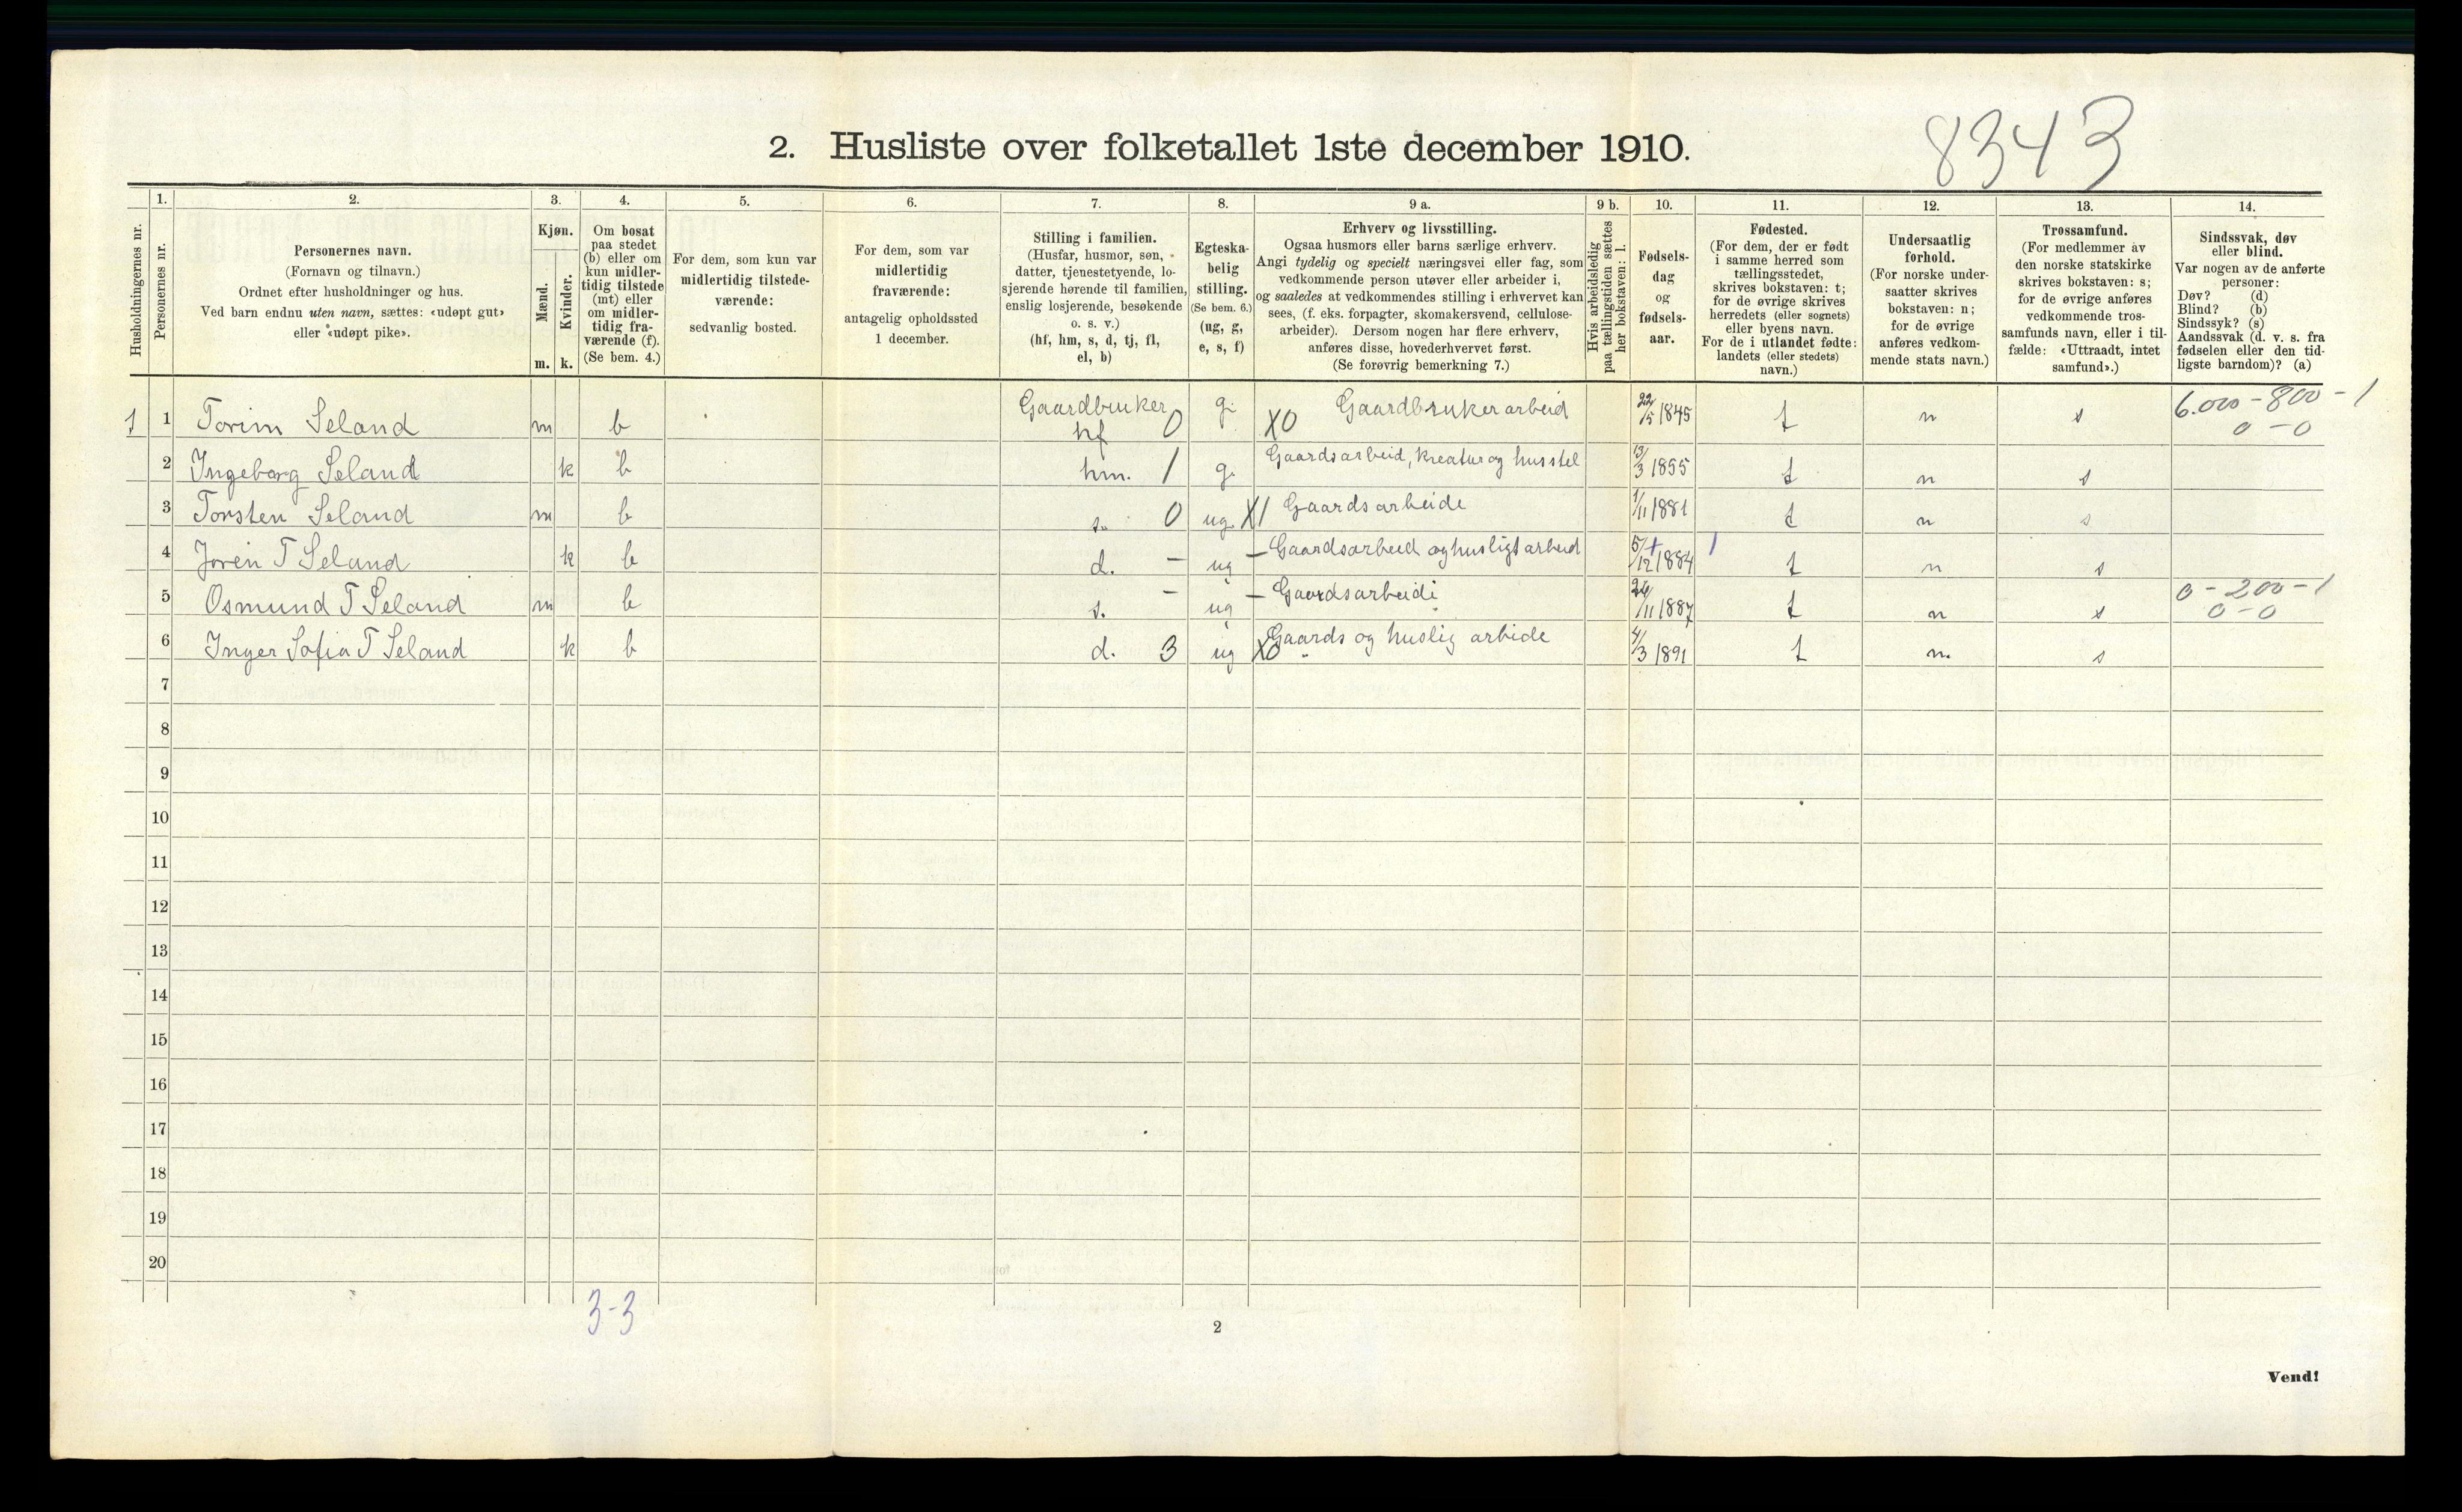 8343
2. Husliste over folketallet 1ste december 1910.
1. 2. 3. 4. 5. 6. 7. 8. 9 a. 9 b. 10. 11. 12. 13. 14.
Husholdningernes nr.
Personernes nr.
Personernes navn.
(Fornavn og tilnavn.)
Ordnet efter husholdninger og hus.
Ved barn endnu uten navn, sættes: «udøpt gut»
eller «udøpt pike».
Kjøn.
Mænd.
Kvinder.
m. k.
Om bosat
paa stedet
(b) eller om
kun midler-
tidig tilstede
(mt) eller
om midler-
tidig fra-
værende (f).
(Se bem. 4.)
For dem, som kun var
midlertidig tilstede-
værende:
sedvanlig bosted.
For dem, som var
midlertidig
fraværende:
antagelig opholdssted
1 december.
Stilling i familien.
(Husfar, husmor, søn,
datter, tjenestetyende, lo-
sjerende hørende til familien,
enslig losjerende, besøkende
o. s. v.)
(hf, hm, s, d, tj, fl,
el, b)
Egteska-
belig
stilling.
(Se bem. 6.)
(ug, g,
e, s, f)
Erhverv og livsstilling.
Ogsaa husmors eller barns særlige erhverv.
Angi tydelig og specielt næringsvei eller fag, som
vedkommende person utøver eller arbeider i,
og saaledes at vedkommendes stilling i erhvervet kan
sees, (f. eks. forpagter, skomakersvend, cellulose-
arbeider). Dersom nogen har flere erhverv,
anføres disse, hovederhvervet først.
(Se forøvrig bemerkning 7.)
Hvis arbeidsledig
paa tællingstiden sættes
her bokstaven: l.
Fødsels-
dag
og
fødsels-
aar.
Fødested.
(For dem, der er født
i samme herred som
tællingsstedet,
skrives bokstaven: t;
for de øvrige skrives
herredets (eller sognets)
eller byens navn.
For de i utlandet fødte:
landets (eller stedets)
navn.)
Undersaatlig
forhold.
(For norske under-
saatter skrives
bokstaven: n;
for de øvrige
anføres vedkom-
mende stats navn.)
Trossamfund.
(For medlemmer av
den norske statskirke
skrives bokstaven: s;
for de øvrige anføres
vedkommende tros-
samfunds navn, eller i til-
fælde: «Uttraadt, intet
samfund».)
Sindssvak, døv
eller blind.
Var nogen av de anførte
personer:
Døv? (d)
Blind? (b)
Sindssyk? (s)
Aandssvak (d. v. s. fra
fødselen eller den tid-
ligste barndom)? (a)
1 1 Torim Seland m b Gaardbruker hf 0 g. X0 Gaardbrukerarbeid 22/5 1845 t n s 6.000-800-1
0-0
2 Ingeborg Seland k b hm. 1 g. Gaardsarbeid, kreatur og husstel 13/3 1855 t n s
3 Torsten Seland m b s. 0 ug. X1 Gaardsarbeide 1/11 1881 t n s
4 Joren T Seland k b d. - ug - Gaardsarbeid og husligt arbeid 5/12 1884 t n s
5 Osmund T Seland m b s. - ug - Gaardsarbeidi 26/11 1887 t n s 0-200-1
0-0
6 Inger Sofia T Seland k b d. 3 ug X0 Gaards og huslig arbide 4/3 1891 t n. s
7
8
9
10
11
12
13
14
15
16
17
18
19
20
3-3
2
Vend!